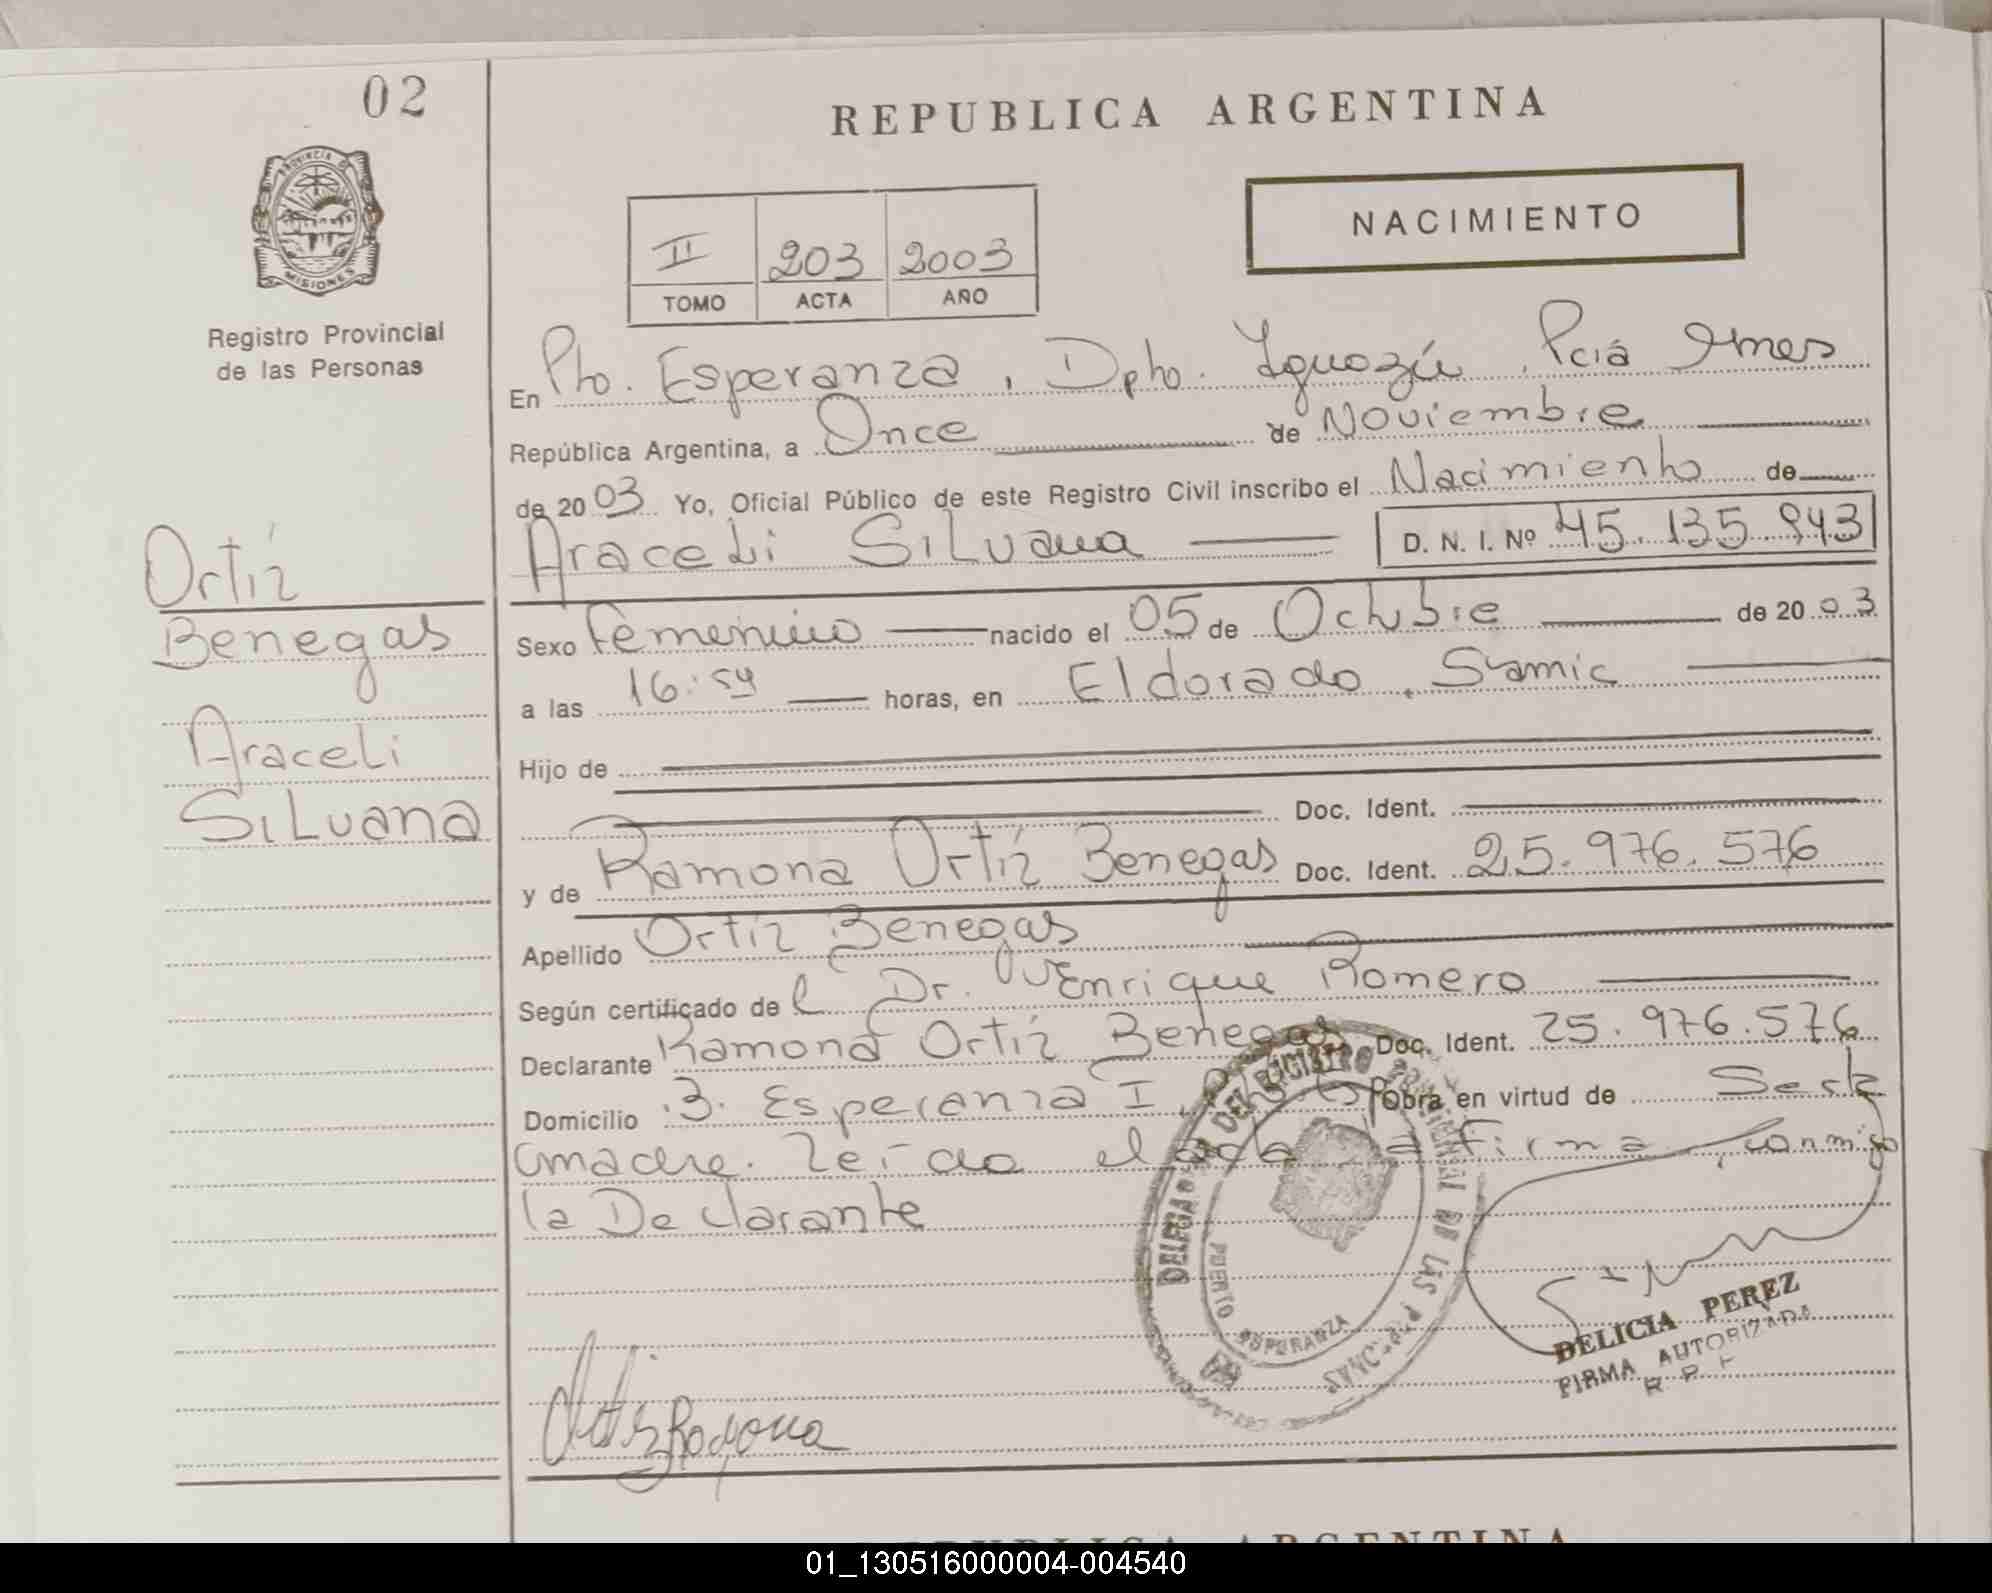 02
PROVINCIA DE
MISIONES
Registro Provincial
de las Personas
Ortíz
Benegas
Araceli
Silvana
REPUBLICA ARGENTINA
NACIMIENTO
II 203 2003
TOMO ACTA AÑO
En Pto. Esperanza, Dpto. Iguazú, Pcia Mnes
República Argentina, a Once de Noviembre
de 2003 Yo, Oficial Público de este Registro Civil inscribo el Nacimiento de
Araceli Silvana D. N. I. Nº 45.135.943
Sexo Femenino nacido el 05 de Octubre de 2003
a las 16:54 horas, en Eldorado, Samic
Hijo de
Doc. Ident.
y de Ramona Ortíz Benegas Doc. Ident. 25.976.576
Apellido Ortíz Benegas
Según certificado de l Dr. Enrique Romero
Declarante Ramona Ortíz Benegas Doc. Ident. 25.976.576
Domicilio B. Esperanza I, Pto Esp Obra en virtud de Ser la
madre. Leída el acta la firma conmigo
la Declarante
DELEGACION DEL REGISTRO PROVINCIAL DE LAS PERSONAS
PUERTO ESPERANZA
DELICIA PEREZ
FIRMA AUTORIZADA
R P
Ortiz Ramona
REPUBLICA ARGENTINA
01_130516000004-004540